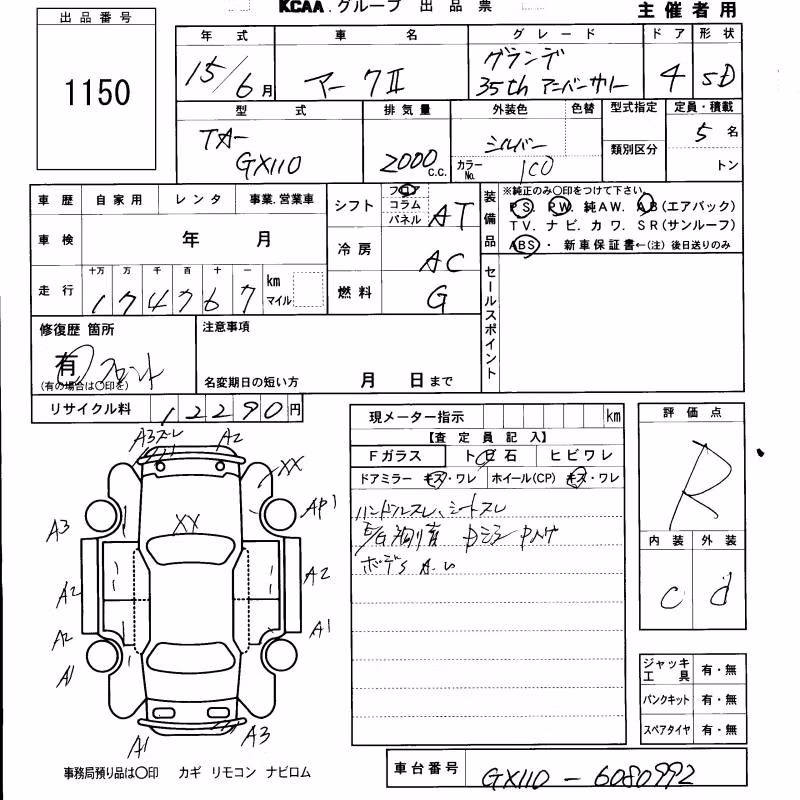 KCAA.グループ 出品票
主催者用
出品番号
1150
年式 車名 グレード ドア 形状
15/6月 マークII グランデ 35th アニバーサリー 4 SD
型式 排気量 外装色 色替 型式指定 定員・積載
TA-GX110 2000c.c. シルバー カラーNo. 1C0 類別区分 5名 トン
車歴 自家用 レンタ 事業.営業車
車検 年 月
走行 十万 万 千 百 十 一 km マイル
174767
シフト フロア コラム パネル AT
冷房 AC
燃料 G
装備品
※純正のみ〇印をつけて下さい。
PS. PW. 純AW. AB(エアバック)
TV. ナビ. カワ. SR(サンルーフ)
ABS・ 新車保証書←(注) 後日送りのみ
セールスポイント
修復歴 箇所
有 フロント
(有の場合は〇印を)
注意事項
名変期日の短い方 月 日まで
リサイクル料 12290円
現メーター指示 km
評価点
R
内装 外装
c d
【査定員記入】
Fガラス ト石 ヒビワレ
ドアミラー キズ・ワレ ホイール(CP) キズ・ワレ
ハンドルスレ、シートスレ
A3 スレ A2
XX
XX
A3 AP1
A2 A2
A2 A1
A1
A1 A3
ジャッキ工具 有・無
パンクキット 有・無
スペアタイヤ 有・無
事務局預り品は〇印 カギ リモコン ナビロム
車台番号 GX110-6080992